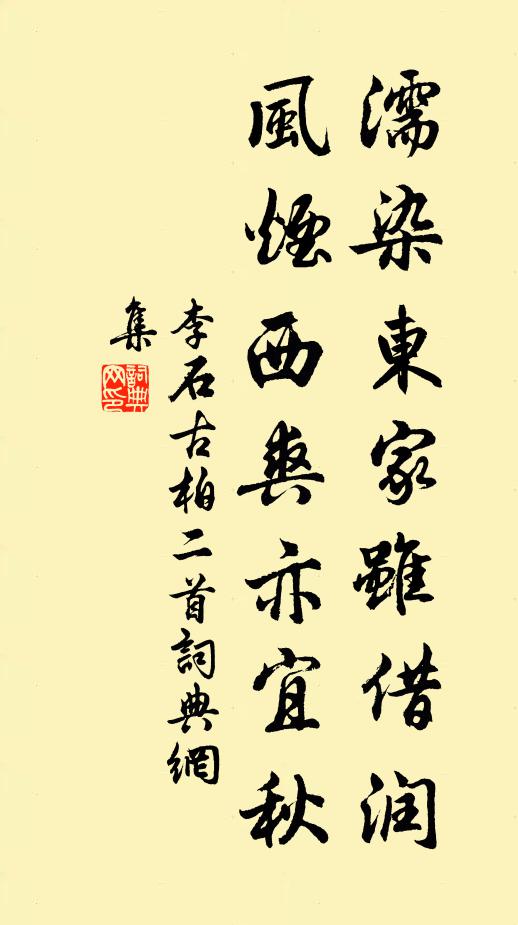 濡染東家雖借润
風煙西爽亦宜秋
李石古柏二首詞典網
集
詞典
网印